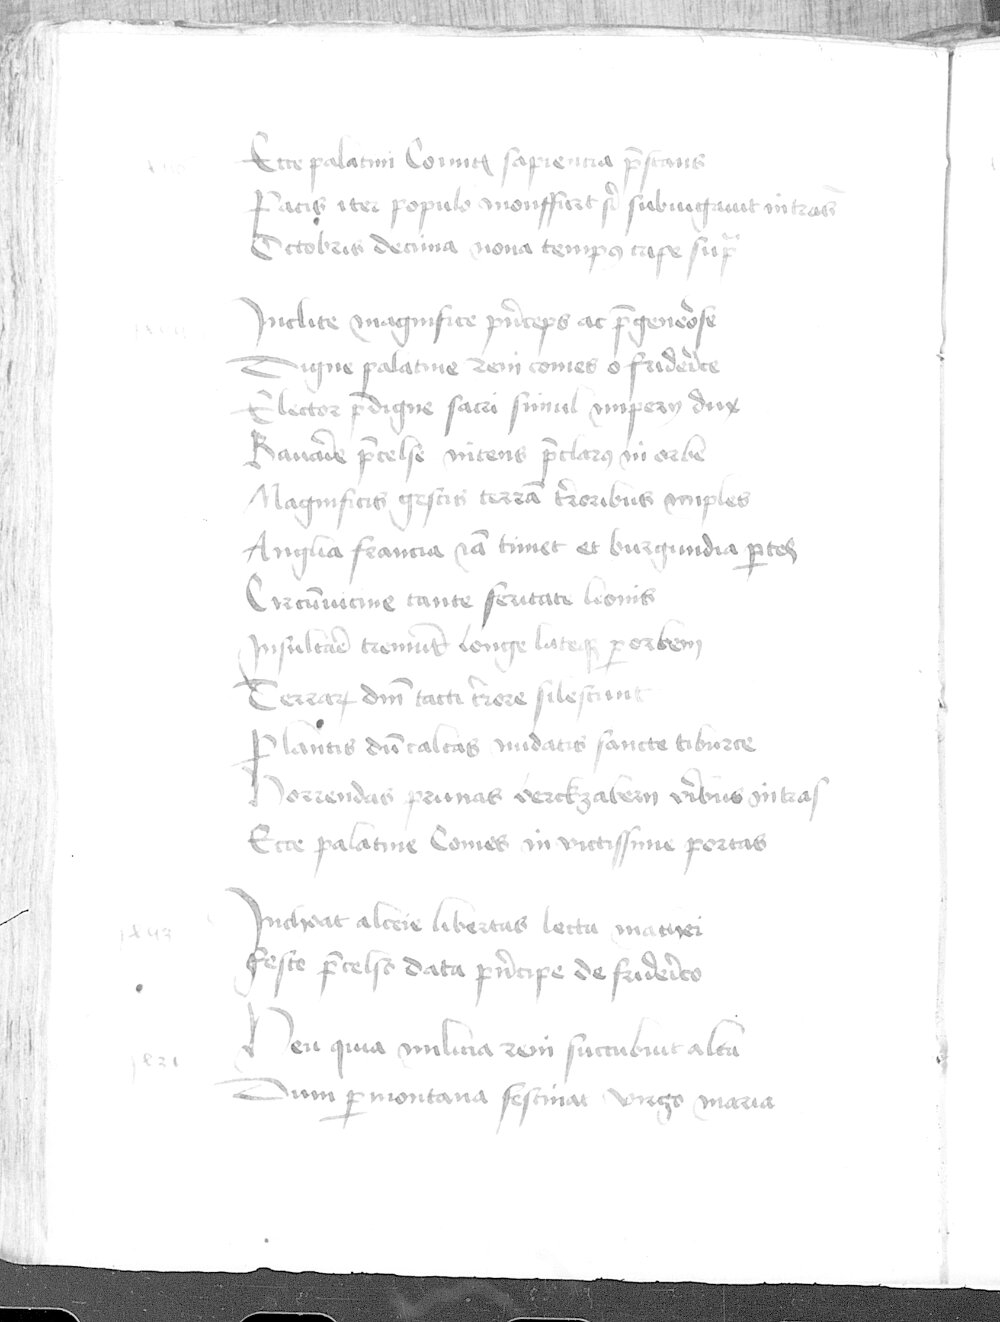 Ecce palatini Comitis sapientia p̄stans
Pacis iter populo monffort subiugauit intrās
Octobris decima nona tempus supra
Inclite magnifice pͥnceps ac p̄generose
Digne palatine reni comes o frider̾ce
Elector p̄digne sacri simul imperij dux
Bauarie p̄celse nitens p̄clarꝰ in orbe
Magnificis gestis terrā t̾roribus imples
Anglia francia iā timet et burgundia ꝑtes
Circūuicine tante feritate leonis
Insultare tremūt longe lateqꝫ ꝑ orbem
Terrarꝝ dn̄i tacti t̾rore silescunt
Plantis dū calcas nudatis sancte tiburce
Horrendas prunas Berckzabern viribus intras
Ecce palatine Comes in victissime portas
Incheat alceie libertas lecta mathei
Feste p̄celso data pͥncipe de friderico
Heu quia milicia reni succubuit alta
Dum ꝑ montana festinat virgo maria